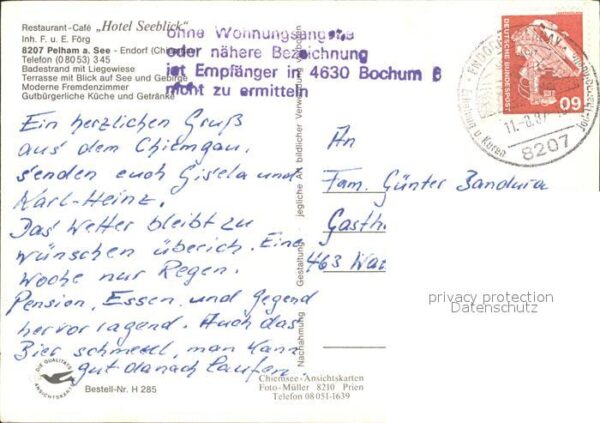 Restaurant-Café „Hotel Seeblick"
Inh. F. u. E. Förg
8207 Pelham a. See - Endorf (Chiemgau)
Telefon (08053) 345
Badestrand mit Liegewiese
Terrasse mit Blick auf See und Gebirge
Moderne Fremdenzimmer
Gutbürgerliche Küche und Getränke
ohne Wohnungsangabe
oder nähere Bezeichnung
ist Empfänger in 4630 Bochum 6
nicht zu ermitteln
Ein herzlichen Gruß
aus dem Chiemgau,
senden euch Gisela und
Karl-Heinz.
Das Wetter bleibt zu
wünschen überich. Eine
Woche nur Regen.
Pension, Essen, und Gegend
hervorragend. Auch das
Bier schmeckt, man kann
gut danach laufen.
DIE QUALITÄTS
ANSICHTSKARTE
Bestell-Nr. H 285
Nachahmung Gestaltung jegliche Art bildlicher Verwendung verboten
Chiemsee-Ansichtskarten
Foto-Müller 8210 Prien
Telefon 08051-1639
DEUTSCHE BUNDESPOST
60
ENDORF
8207
An
Fam. Günter Bandura
Gasth
463 Wat
privacy protection
Datenschutz